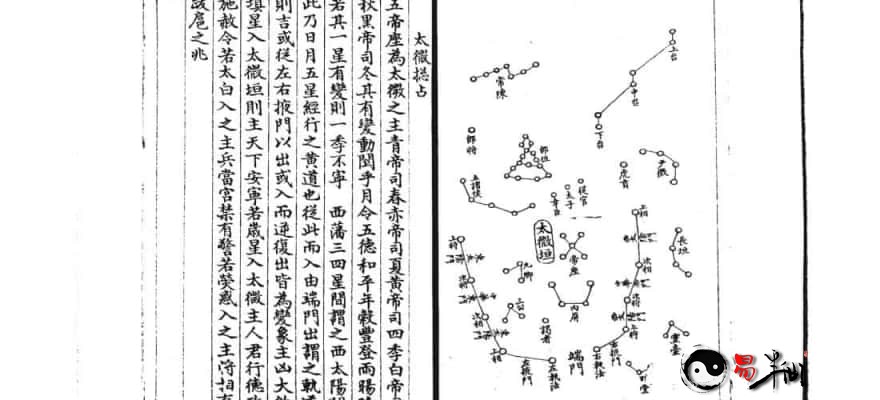 上台
中台
下台
常陳
郎將
郎位
五諸侯
虎賁
少微
從官
太子
幸臣
上相
太微垣
帝座
長垣
上將
次相
九卿
次將
內屏
次將
次相
上將
謁者
靈臺
上相
左掖門
左執法
端門
右執法
右掖門
明堂
太微總占
五帝座為太微之主青帝司春赤帝司夏黃帝司四季白帝司
秋黑帝司冬其有變動閱乎月令五德和平年穀豐登雨暘
若其一星有變則一季不寧 西藩三四星間謂之西太陽
此乃日月五星經行之黃道也從此而入由端門出謂之軌道
則吉或從左右掖門以出或入而逆復出皆為變象主凶大
填星入太微垣則主天下安寧若歲星入太微主人君行德
施赦令若太白入之主兵當宮禁有警若熒惑入之主
跋扈之兆
易
半仙